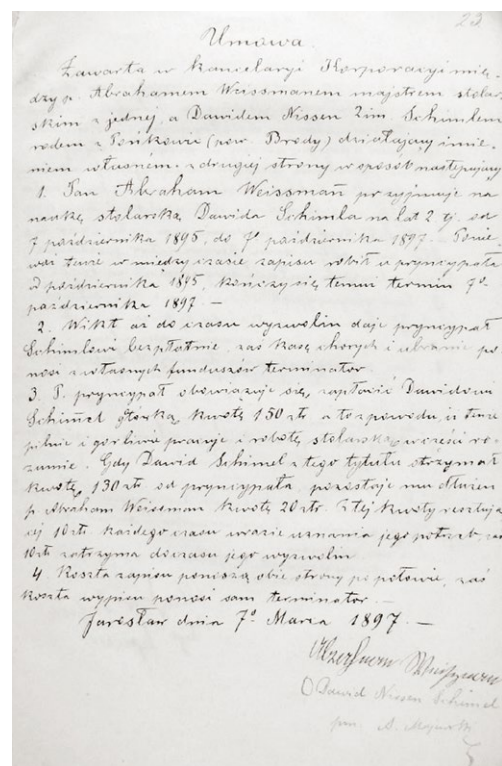 22
Umowa.
Zawarta w kancelaryi Korporacyi mię-
dzy p. Abrahamem Weissmanem majstrem stolar-
skim z jednej, a Dawidem Nissen 2im. Schimlem
rodem z Pońkowic (pow. Brody) działający imie-
niem własnem z drugiej strony w sposób następujący
1. Pan Abraham Weissman przyjmuje na
naukę stolarską Dawida Schimla na lat 2 tj. od
7 października 1895, do 7º października 1897. Ponie
waż tenże w międzyczasie zapisu robił u pryncypała
od października 1895, kończy się temu termin 7º
października 1897 —
2. Wikt aż do czasu wyzwolin daje pryncypał
Schimlowi bezpłatnie, zaś kasę chorych i ubranie po
nosi z własnych funduszów terminator.
3. P. pryncypał obowiązuje się, zapłacić Dawidowi
Schimel gotówką kwotę 150 zł a to z powodu, iż tenże
pilnie i gorliwie pracuje i robotę stolarską wcześci ro-
zumie. Gdy Dawid Schimel z tego tytułu otrzymał
kwotę 130 zł. od pryncypała, pozostaje mu dłużen
p. Abraham Weissman kwotę 20 zł. Z tej kwoty
cej 10 zł. każdego czasu w razie uznania jego potrzeb, zaś
10 zł zatrzyma do czasu jego wyzwolin
4. Koszta zapisu ponoszą obie strony po połowie, zaś
koszta wypisu ponosi sam terminator. —
Jarosław dnia 7º Marca 1897. —
Dawid Nissen Schimel